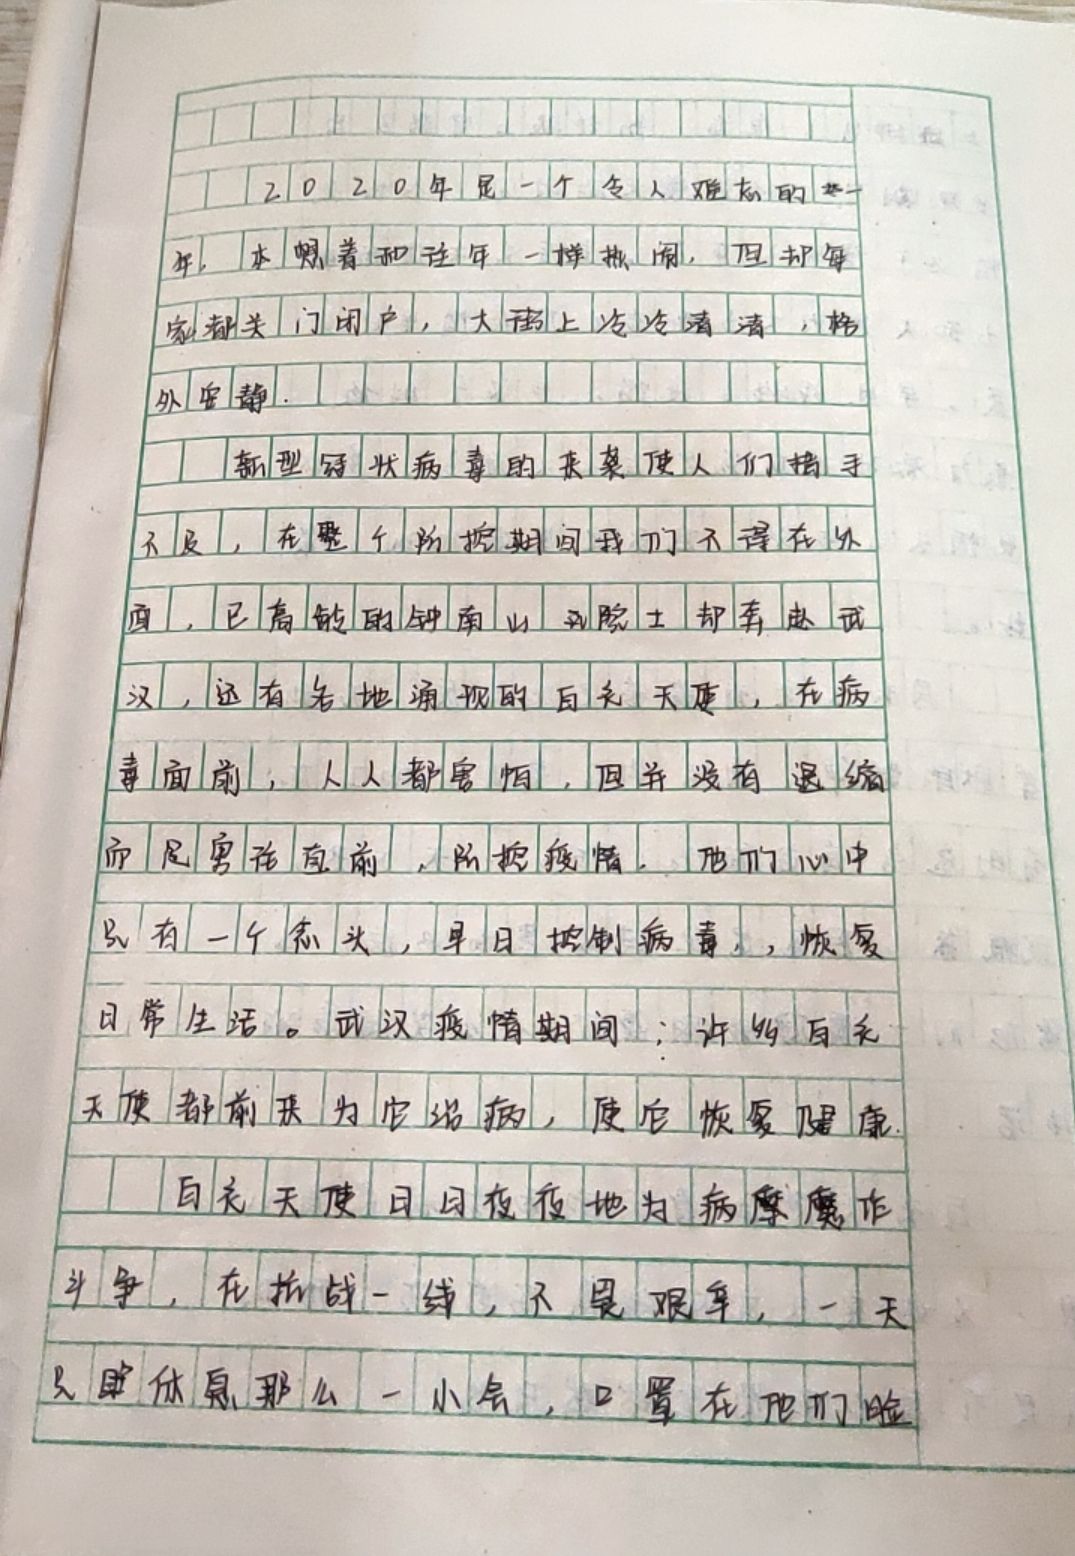 2020年是一个令人难忘的一
年，本想着和往年一样热闹，但却每
家都关门闭户，大街上冷冷清清，格
外安静.
新型冠状病毒的来袭使人们措手
不及，在整个防控期间我们不得在外
面，已高龄的钟南山院士却奔赴武
汉，还有各地涌现的白衣天使，在病
毒面前，人人都害怕，但并没有退缩
而是勇往直前，防控疫情. 他们心中
只有一个念头，早日控制病毒，恢复
日常生活。武汉疫情期间；许多白衣
天使都前来为它治病，使它恢复健康.
白衣天使日日夜夜地为病魔作
斗争，在抗战一线，不畏艰辛，一天
只休息那么一小会，口置在他们脸